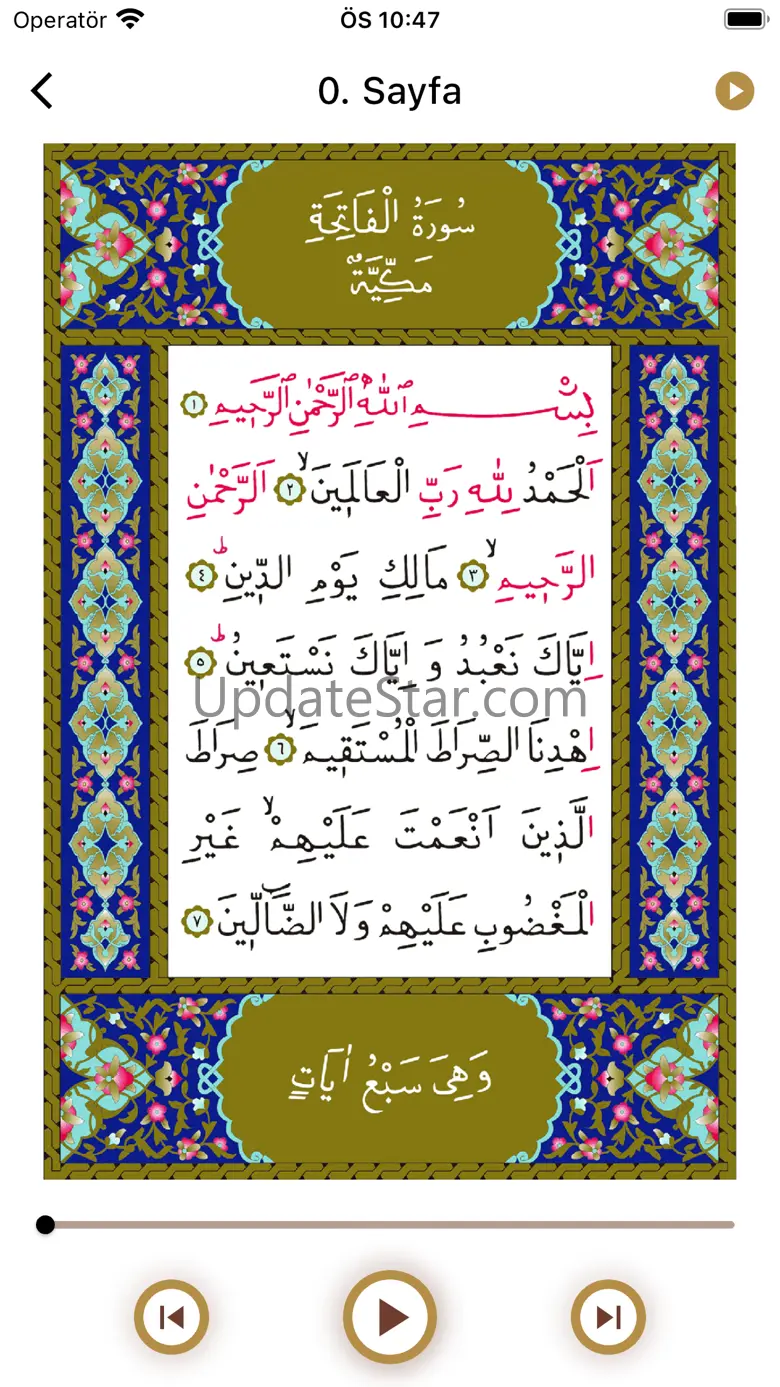 Operatör ÖS 10:47
0. Sayfa
سُورَةُ الْفَاتِحَةِ
مَكِّيَّةٌ
بِسْمِ اللّٰهِ الرَّحْمٰنِ الرَّحٖيمِ ﴿١﴾
اَلْحَمْدُ لِلّٰهِ رَبِّ الْعَالَمٖينَۙ ﴿٢﴾ اَلرَّحْمٰنِ
الرَّحٖيمِۙ ﴿٣﴾ مَالِكِ يَوْمِ الدّٖينِؕ ﴿٤﴾
اِيَّاكَ نَعْبُدُ وَ اِيَّاكَ نَسْتَعٖينُؕ ﴿٥﴾
UpdateStar.com
اِهْدِنَا الصِّرَاطَ الْمُسْتَقٖيمَۙ ﴿٦﴾ صِرَاطَ
الَّذٖينَ اَنْعَمْتَ عَلَيْهِمْۙ غَيْرِ
الْمَغْضُوبِ عَلَيْهِمْ وَلَا الضَّٓالّٖينَ ﴿٧﴾
وَهِىَ سَبْعُ اٰيَاتٍ